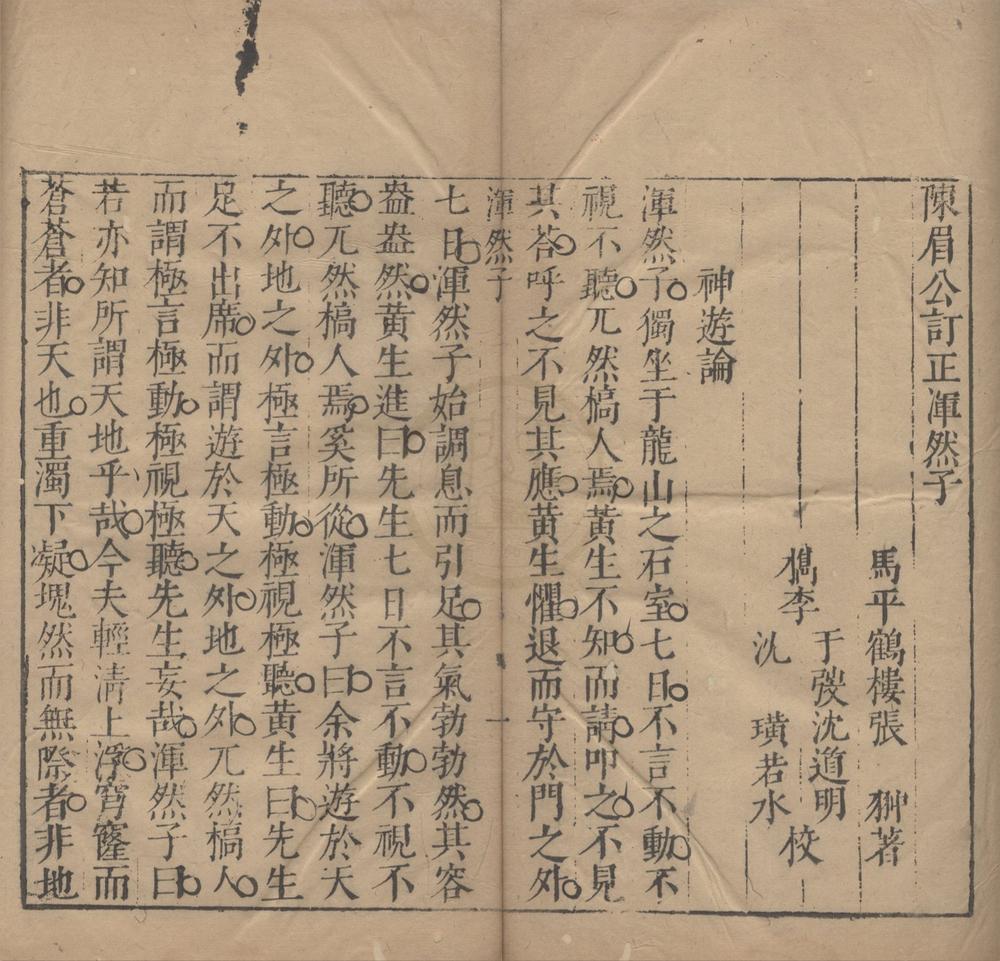 陳眉公訂正渾然子
馬平鶴樓張 翀著
檇李 于燮沈道明
沈 璜若水 校
神遊論
渾然子獨坐于龍山之石室七日不言不動不
視不聽兀然槁人焉黃生不知而請叩之不見
其荅呼之不見其應黃生懼退而守於門之外
渾然子
一
七日渾然子始調息而引足其氣勃勃然其容
盎盎然黃生進曰先生七日不言不動不視不
聽兀然槁人焉奚所從渾然子曰余將遊於天
之外地之外極言極動極視極聽黃生曰先生
足不出席而謂遊於天之外地之外兀然槁人
而謂極言極動極視極聽先生妄哉渾然子曰
若亦知所謂天地乎哉今夫輕清上浮穹窿而
蒼蒼者非天也重濁下凝塊然而無際者非地